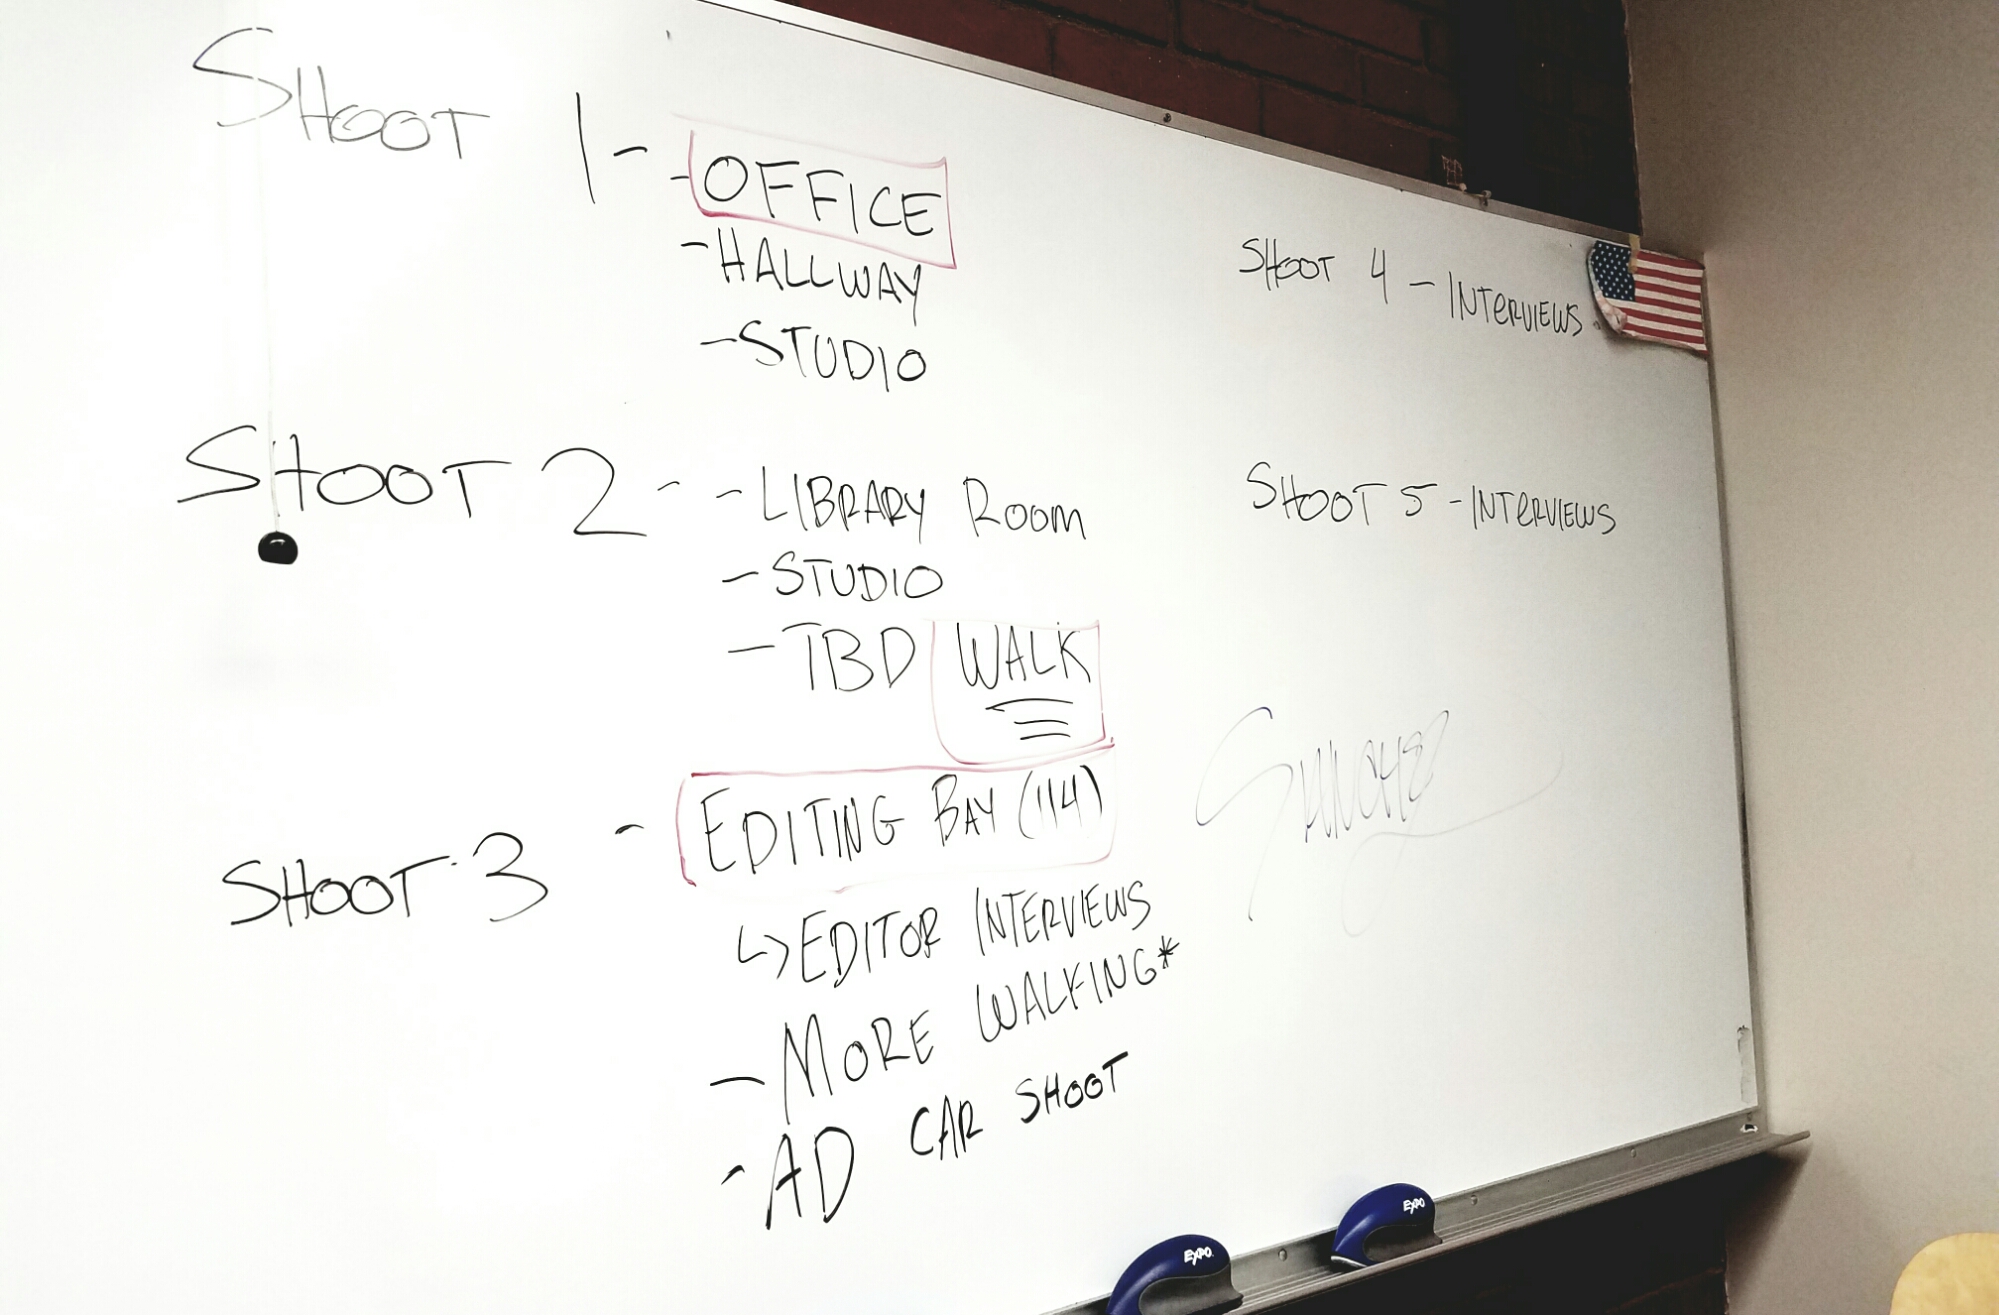 SHOOT 1 - - OFFICE
- HALLWAY
- STUDIO
SHOOT 2 - - LIBRARY ROOM
- STUDIO
- TBD WALK
SHOOT 3 - EDITING BAY (114)
↳ EDITOR INTERVIEWS
- MORE WALKING*
- AD CAR SHOOT
SHOOT 4 - INTERVIEWS
SHOOT 5 - INTERVIEWS
SANCHEZ
EXPO
EXPO